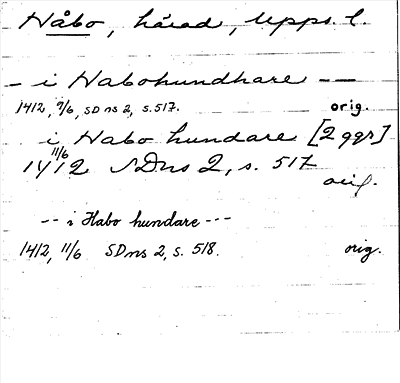 Håbo, härad, Upps. l.
- i Habohundhare --
1412, 9/6, SD ns 2, s. 517. orig.
i Habo hundare [2 ggr]
1412 11/6 SDns 2, s. 517 orig.
-- i Habo hundare ---
1412, 11/6 SD ns 2, s. 518. orig.